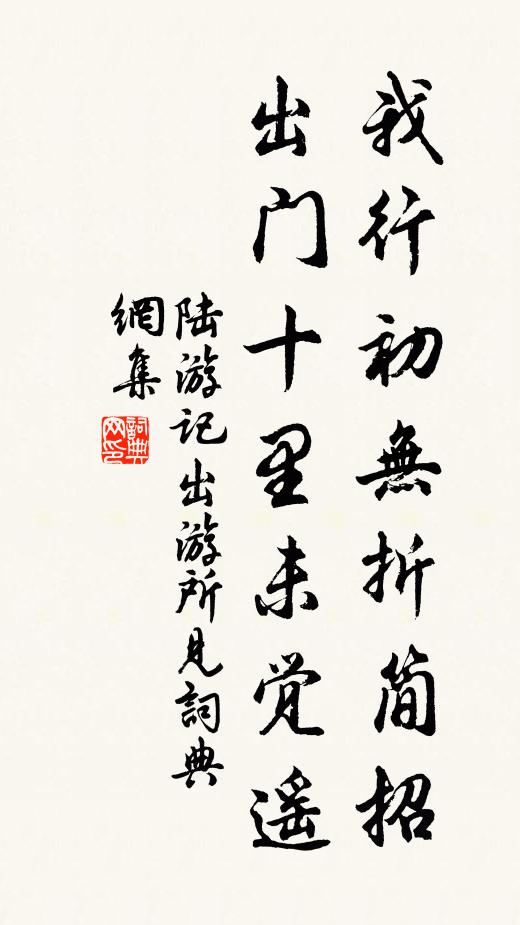 我行初無折简招
出门十里未觉遥
陆游记出游所见詞典
網集
詞典
网印